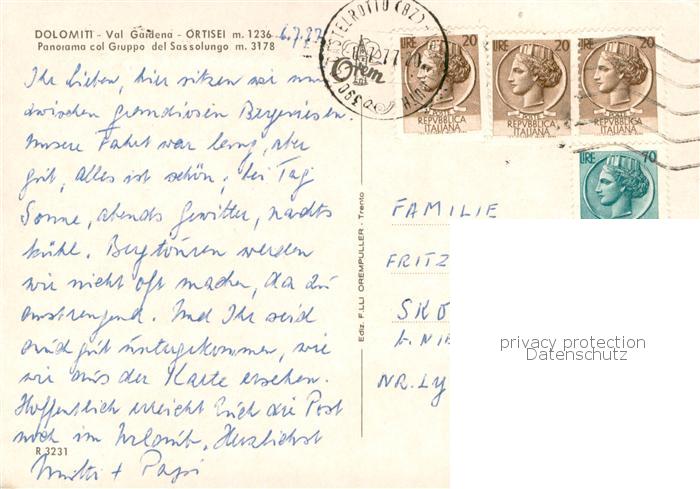 DOLOMITI - Val Gardena - ORTISEI m. 1236
Panorama col Gruppo del Sassolungo m. 3178
6.7.77
Ihr Lieben, hier sitzen wir nun
zwischen grandiosen Bergriesen.
Unsere Fahrt war lang, aber
gut, alles ist schön, bei Tag
Sonne, abends Gewitter, nachts
kühl. Bergtouren werden
wir nicht oft machen, da zu
anstrengend. Und Ihr seid
auch gut untergekommen, wie
wir aus der Karte ersehen.
Hoffentlich erreicht Euch die Post
noch im Urlaub. Herzlichst
Mutti + Papi
R 3231
Ediz. F.LLI OREMPULLER - Trento
CASTELROTTO (BZ)
390
LIRE 20
POSTE
REPVBBLICA
ITALIANA
LIRE 20
POSTE
REPVBBLICA
ITALIANA
LIRE 20
POSTE
REPVBBLICA
ITALIANA
LIRE 70
FAMILIE
FRITZ
SKO
NR. LY
privacy protection
Datenschutz